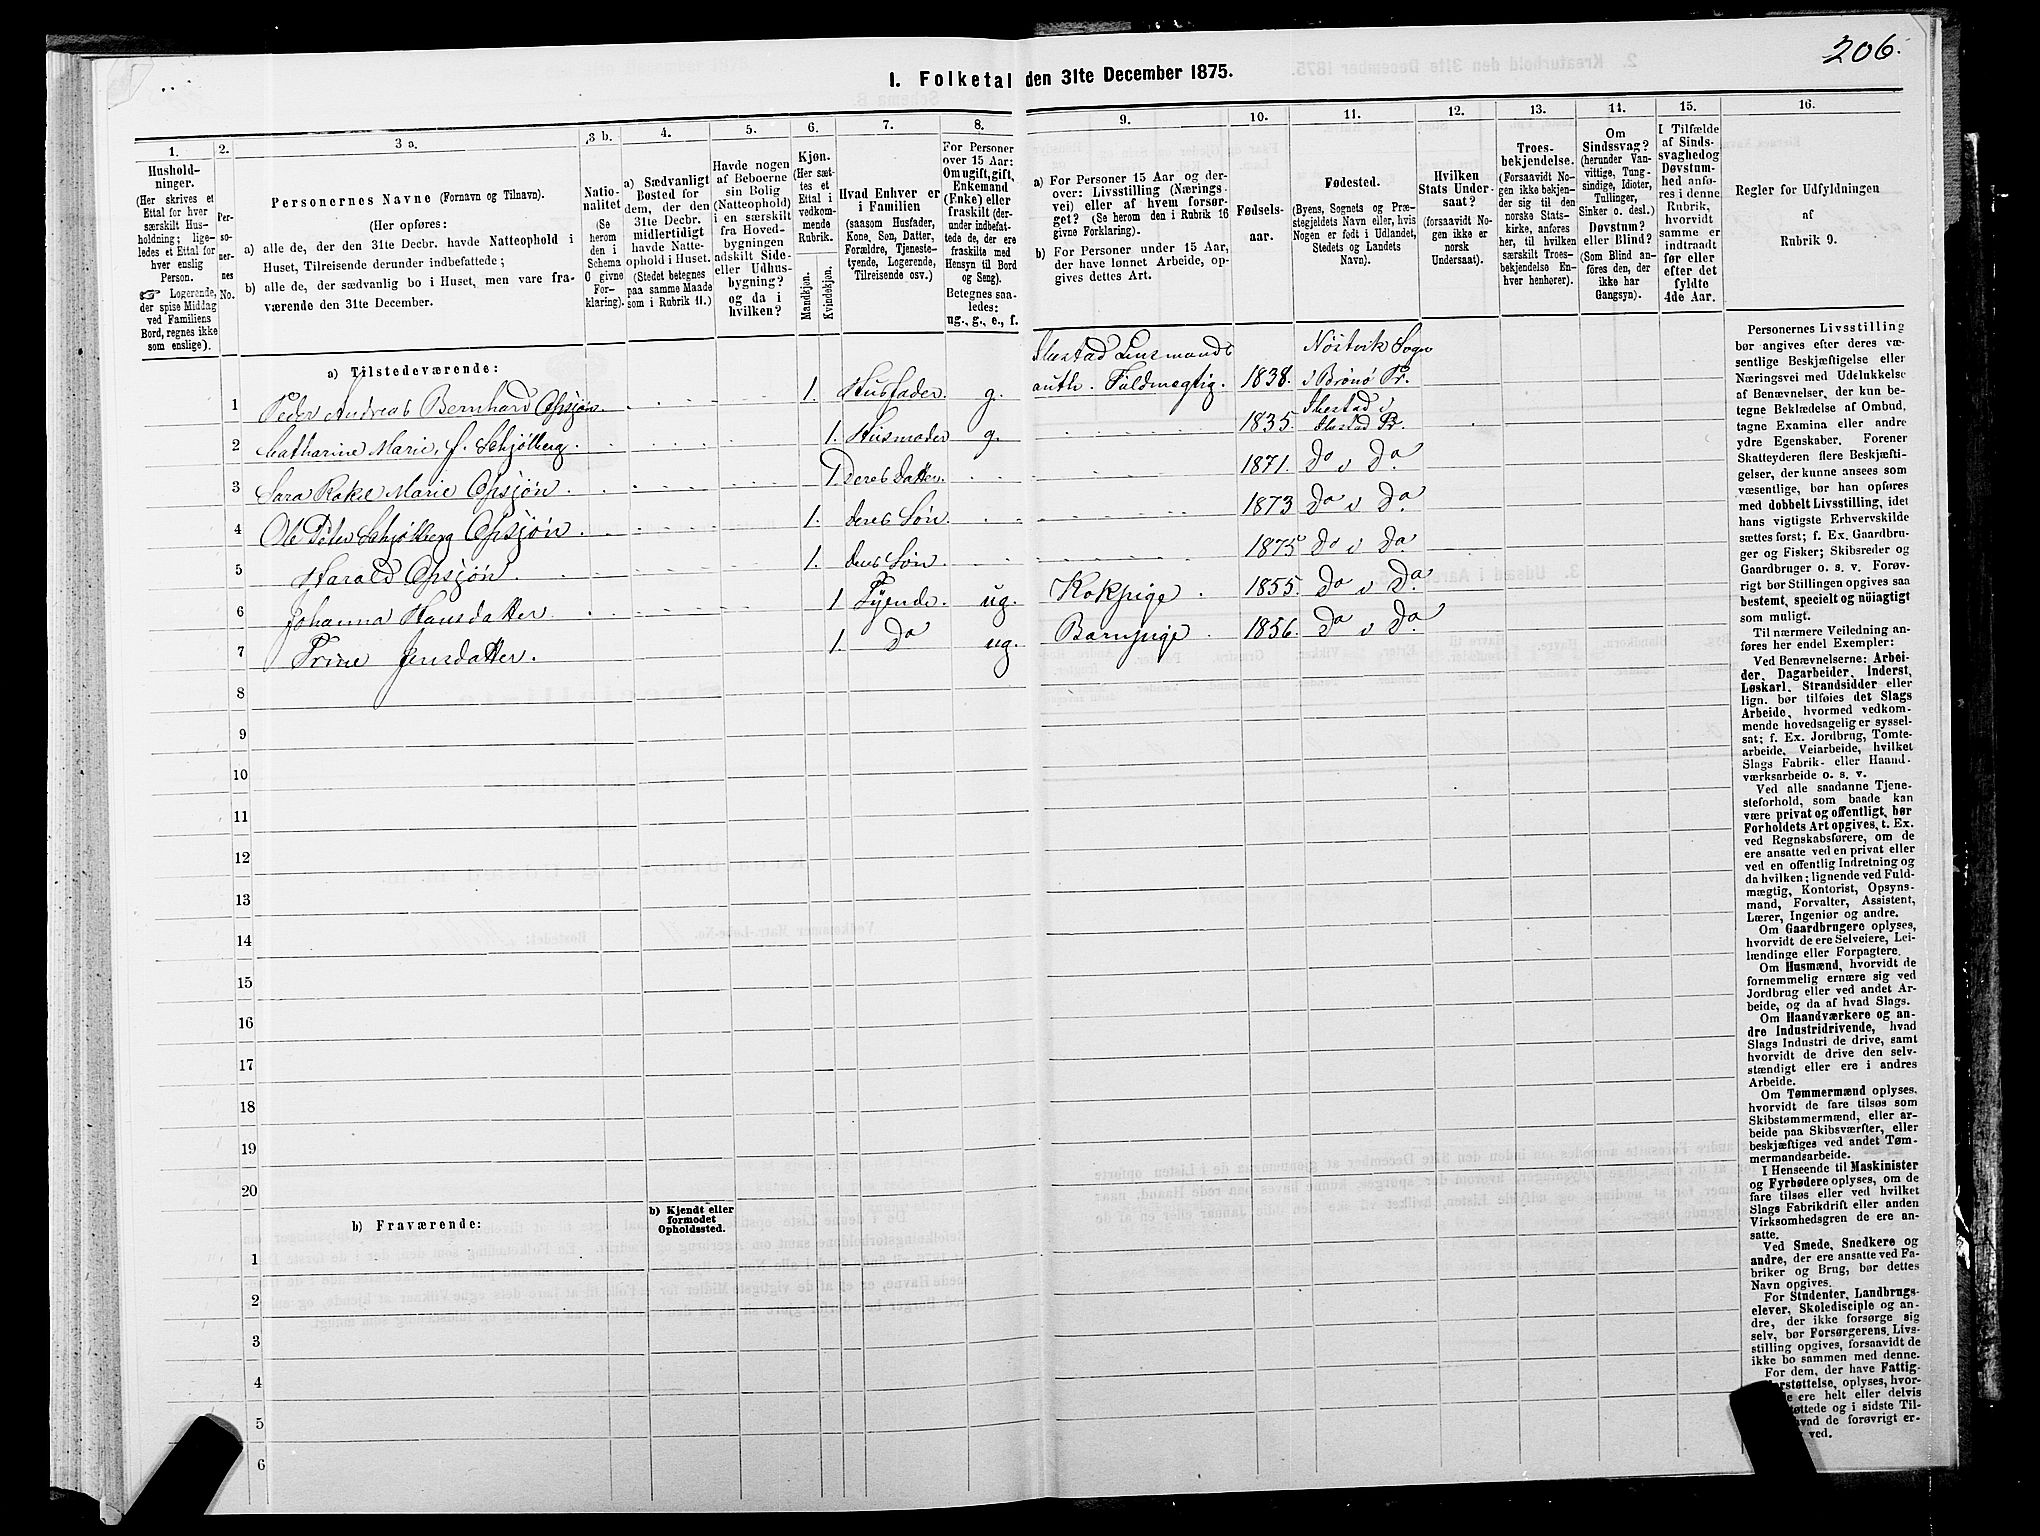 206.
I. Folketal den 31te December 1875.
1.
Husholdninger.
(Her skrives et
Ettal for hver
særskilt Husholdning; ligeledes et Ettal for
hver enslig
Person.
☞ Logerende,
der spise Middag
ved Familiens
Bord, regnes ikke
som enslige).
2.
Personernes
No.
3 a.
Personernes Navne (Fornavn og Tilnavn).
(Her opføres:
a) alle de, der den 31te Decbr. havde Natteophold i
Huset, Tilreisende derunder indbefattede;
b) alle de, der sædvanlig bo i Huset, men vare fraværende den 31te December.
3 b.
Nationalitet
(Se
herom
den i
Schema
O givne
Forklaring).
4.
a) Sædvanligt
Bosted for
dem, der den
31te Decbr.
midlertidigt
havde Natteophold i Huset.
(Stedet betegnes
paa samme Maade
som i Rubrik 11.)
5.
Havde nogen
af Beboerne
sin Bolig
(Natteophold)
i en særskilt
fra Hovedbygningen
adskilt Side-
eller Udhusbygning?
og da i
hvilken?
6.
Kjøn.
(Her sættes et
Ettal i
vedkommende
Rubrik.
Mandkjøn.
Kvindekjøn.
7.
Hvad Enhver er
i Familien
(saasom Husfader,
Kone, Søn, Datter,
Forældre, Tjenestetyende, Logerende,
Tilreisende osv.)
8.
For Personer
over 15 Aar:
Om ugift, gift,
Enkemand
(Enke) eller
fraskilt (derunder indbefattede de, der ere
fraskilte med
Hensyn til Bord
og Seng).
Betegnes saaledes:
ug., g., e., f.
9.
a) For Personer 15 Aar og derover: Livsstilling (Næringsvei) eller af hvem forsørget? (Se herom den i Rubrik 16
givne Forklaring).
b) For Personer under 15 Aar,
der have lønnet Arbeide, opgives dettes Art.
10.
Fødselsaar.
11.
Fødested.
(Byens, Sognets og Præstegjeldets Navn eller, hvis
Nogen er født i Udlandet,
Stedets og Landets
Navn).
12.
Hvilken
Stats Undersaat?
(forsaavidt Nogen ikke er
norsk
Undersaat).
13.
Troesbekjendelse.
(Forsaavidt Nogen ikke bekjender sig til den
norske Statskirke, anføres
her, til hvilken
særskilt Troesbekjendelse Enhver henhører).
14.
Om
Sindssvag?
(herunder Vanvittige, Tungsindige, Idioter,
Tullinger,
Sinker o. desl.)
Døvstum?
eller Blind?
(Som Blind anføres den, der
ikke har
Gangsyn).
15.
I Tilfælde
af Sindssvaghed og
Døvstumhed anføres i denne
Rubrik,
hvorvidt
samme er
indtraadt
før eller
efter det
fyldte
4de Aar.
16.
Regler for Udfyldningen
af
Rubrik 9.
a) Tilstedeværende:
1 Peder Andreas Bernhard Opsjøn. 1. Husfader. g. Ibestad Lensmands auth. Fuldmægtig. 1838. Nöstvik Sogn i Brønø Pr.
2 Catharine Marie, f. Schjølberg. 1. Husmoder g. 1835. Ibestad i Ibestad Pr.
3 Sara Rake Marie Opsjøn. 1 Deres Datter. 1871. Do i Do
4 Ole Peter Schjølberg Opsjøn 1. deres Søn. 1873 Do i Do
5 Harald Opsjøn. 1. deres Søn 1875 Do i Do
6 Johanna Hansdatter. 1 Tyende. ug. Kokpige. 1855. Do i Do
7 Trine Jensdatter. 1. Do ug. Barnpige. 1856. Do i Do
8
9
10
11
12
13
14
15
16
17
18
19
20
b) Fraværende:
b) Kjendt eller
formodet
Opholdssted.
1
2
3
4
5
6
Personernes Livsstilling
bør angives efter deres væsentlige Beskjæftigelse eller
Næringsvei med Udelukkelse
af Benævnelser, der kun betegne Beklædelse af Ombud,
tagne Examina eller andre
ydre Egenskaber. Forener
Skatteyderen flere Beskjæftigelser, der kunne ansees som
væsentlige, bør han opføres
med dobbelt Livsstilling, idet
hans vigtigste Erhvervskilde
sættes først; f. Ex. Gaardbruger og Fisker; Skibsreder og
Gaardbruger o. s. v. Forøvrigt bør Stillingen opgives saa
bestemt, specielt og nöiagtigt
som muligt.
Til nærmere Veiledning anføres her endel Exempler:
Ved Benævnelserne: Arbeider, Dagarbeider, Inderst,
Løskarl, Strandsidder eller
lign. bør tilføies det Slags
Arbeide, hvormed vedkommende hovedsagelig er sysselsat; f. Ex. Jordbrug, Tomtearbeide, Veiarbeide, hvilket
Slags Fabrik- eller Haandværksarbeide o. s. v.
Ved alle saadanne Tjenesteforhold, som baade kan
være privat og offentligt, bør
Forholdets Art opgives, t. Ex.
ved Regnskabsførere, om de
ere ansatte ved en privat eller
ved en offentlig Indretning og
da hvilken; lignende ved Fuldmægtig, Kontorist, Opsynsmand, Forvalter, Assistent,
Lærer, Ingeniør og andre.
Om Gaardbrugere oplyses,
hvorvidt de ere Selveiere, Leilændinge eller Forpagtere.
Om Husmænd, hvorvidt de
fornemmelig ernære sig ved
Jordbrug eller ved andet Arbeide, og da af hvad Slags.
Om Haandværkere og andre Industridrivende, hvad
Slags Industri de drive, samt
hvorvidt de drive den selvstændigt eller ere i andres
Arbeide.
Om Tømmermænd oplyses,
hvorvidt de fare tilsøs som
Skibstømmermænd, eller arbeide paa Skibsværfter, eller
beskjæftiges ved andet Tømmermandsarbeide.
I Henseende til Maskinister
og Fyrbødere oplyses, om de
fare tilsøs eller ved hvilket
Slags Fabrikdrift eller anden
Virksomhedsgren de ere ansatte.
Ved Smede, Snedkere og
andre, der ere ansatte ved Fabriker og Brug, bør dettes
Navn opgives.
For Studenter, Landbrugselever, Skoledisciple og andre, der ikke forsørge sig
selv, bør Forsørgerens Livsstilling opgives, forsaavidt de
ikke bo sammen med denne.
For dem, der have Fattig-
oplyses, hvor-
ere helt eller delvis
og i sidste Til-
hvad de forøvrigt er-
ved.